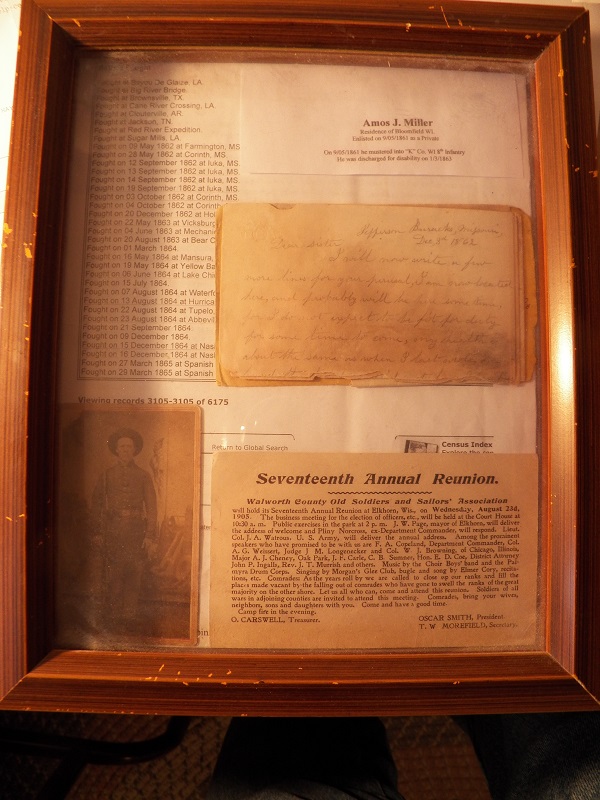 Fought at Bayou De Glaize, LA.
River Bridge.
Fought at Brownsville, TX.
Fought at Cane River Crossing, LA.
Fought at Cloutervills, AR.
Fought at Jackson, TN.
Fought at Red River Expedition.
Fought at Sugar Mills, LA.
Fought on 09 May 1862 at Farmington, MS.
Fought on 28 May 1862 at Corinth, MS.
Fought on 12 September 1862 at Iuka, MS.
Fought on 13 September 1862 at Iuka, MS.
Fought on 14 September 1862 at Iuka, MS.
Fought on 19 September 1862 at Iuka, MS.
Fought on 03 October 1862 at Corinth, MS.
Fought on 04 October 1862 at Corinth
Fought on 20 December 1862 at Hol
Fought on 22 May 1863 at Vicksburg
Fought on 04 June 1863 at Mechani
Fought on 20 August 1863 at Bear C
Fought on 01 March 1864.
Fought on 16 May 1864 at Mansura,
Fought on 19 May 1864 at Yellow Ba
Fought on 06 June 1864 at Lake Chi
Fought on 15 July 1864.
Fought on 07 August 1864 at Waterfo
Fought on 13 August 1864 at Hurrica
Fought on 22 August 1864 at Tupelo,
Fought on 23 August 1864 at Abbevil
Fought on 21 September 1864.
Fought on 09 December 1864.
Fought on 15 December 1864 at Nas
Fought on 16 December 1864 at Nas
Fought on 27 March 1865 at Spanish
Fought on 29 March 1865 at Spanish
Viewing records 3105-3105 of 6175
Amos J. Miller
Residence of Bloomfield WI
Enlisted on 9/05/1861 as a Private
On 9/05/1861 he mustered into "K" Co. WI 8th Infantry
He was discharged for disability on 1/5/1863
Jefferson Barracks, Missouri
Dec 8th 1862
Dear Sister
I will now write a few
more lines for you
here and probably will be for some time.
for
for some time
about the same as when I
Return to Global Search
Census Index
Explore the
Seventeenth Annual Reunion.
Walworth County Old Soldiers and Sailors' Association
will hold its Seventeenth Annual Reunion at Elkhorn, Wis., on Wednesday, August 23d,
1905. The business meeting for the election of officers, etc., will be held at the Court House at
10:30 a. m. Public exercises in the park at 2 p. m. J. W. Page, mayor of Elkhorn, will deliver
the address of welcome and Pliny Norcross, ex-Department Commander, will respond. Lieut.
Col. J. A. Watrous, U. S. Army, will deliver the annual address. Among the prominent
speakers who have promised to be with us are F. A. Copeland, Department Commander, Col.
A. G. Weissert, Judge J. M. Longenecker and Col. W. J. Browning, of Chicago, Illinois,
Major A. J. Cheney, Oak Park, J. F. Carle, C. B. Sumner, Hon. E. D. Coe, District Attorney
John P. Ingalls, Rev. J. T. Murrish and others. Music by the Choir Boys' band and the Pal-
myra Drum Corps. Singing by Morgan's Glee Club, bugle and song by Elmer Cory, recita-
tions, etc. Comrades: As the years roll by we are called to close up our ranks and fill the
places made vacant by the falling out of comrades who have gone to swell the ranks of the great
majority on the other shore. Let us all who can, come and attend this reunion. Soldiers of all
wars in adjoining counties are invited to attend this meeting. Comrades, bring your wives,
neighbors, sons and daughters with you. Come and have a good time.
Camp fire in the evening.
O. CARSWELL, Treasurer.
OSCAR SMITH, President.
T. W. MOREFIELD, Secretary.